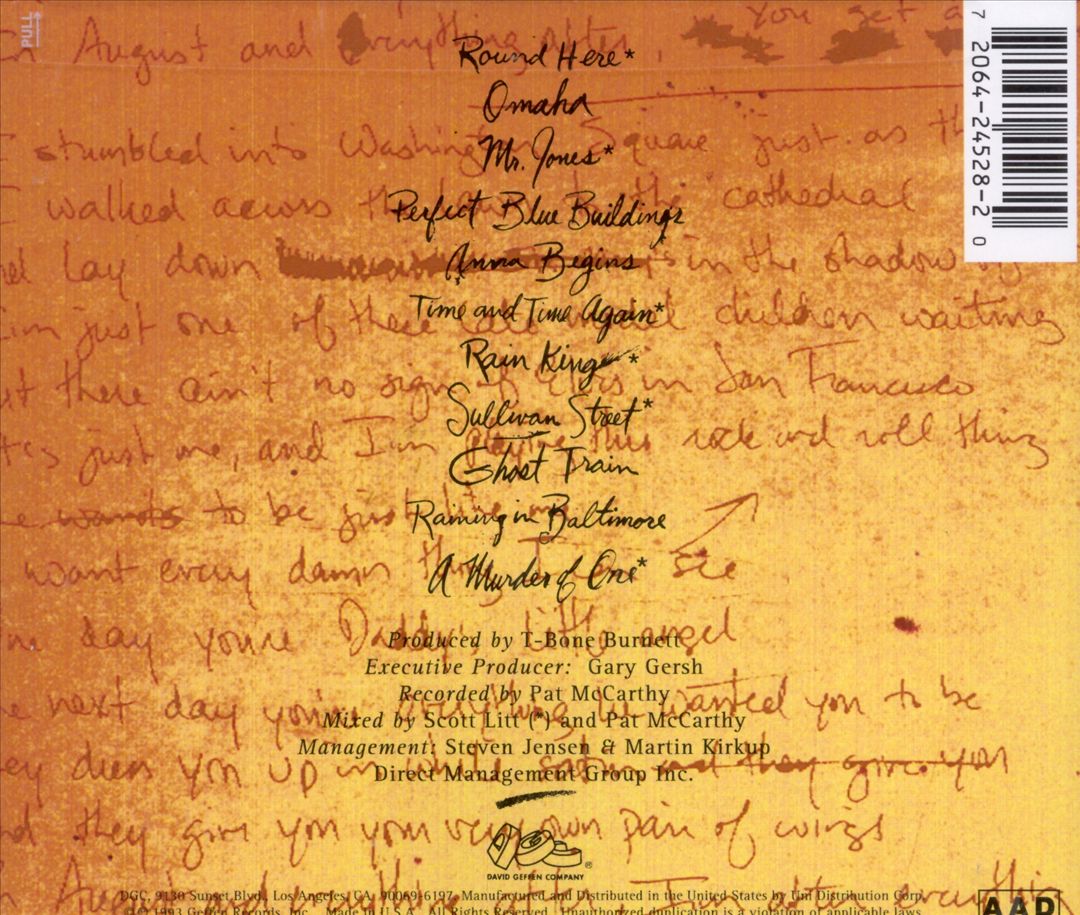 PULL
In August and everything after, You get a
Round Here*
Omaha
I stumbled into Washington Square just as th
Mr. Jones*
I walked across the this cathedral
Perfect Blue Buildings
lay down in the shadow
Anna Begins
I'm just one of these children waiting
Time and Time Again*
Rain King *
there ain't no sign of in San Francisco
Sullivan Street*
just me, and I'm playing this rock and roll thing
Ghost Train
wants to be just like me
Raining in Baltimore
want every damn thing I see
A Murder of One*
day you're Daddy's little angel
Produced by T-Bone Burnett
Executive Producer: Gary Gersh
Recorded by Pat McCarthy
next day you're everything he wanted you to be
Mixed by Scott Litt (*) and Pat McCarthy
Management: Steven Jensen & Martin Kirkup
dress you up in white satin and they give you
Direct Management Group Inc.
they give you your very own pair of wings
DAVID GEFFEN COMPANY
®
In August and everything
DGC, 9130 Sunset Blvd., Los Angeles, CA 90069-6197 Manufactured and Distributed in the United States by Uni Distribution Corp.
© 1993 Geffen Records, Inc. Made in U.S.A. All Rights Reserved. Unauthorized duplication is a violation of applicable laws.
AAD
7 2064-24528-2 0